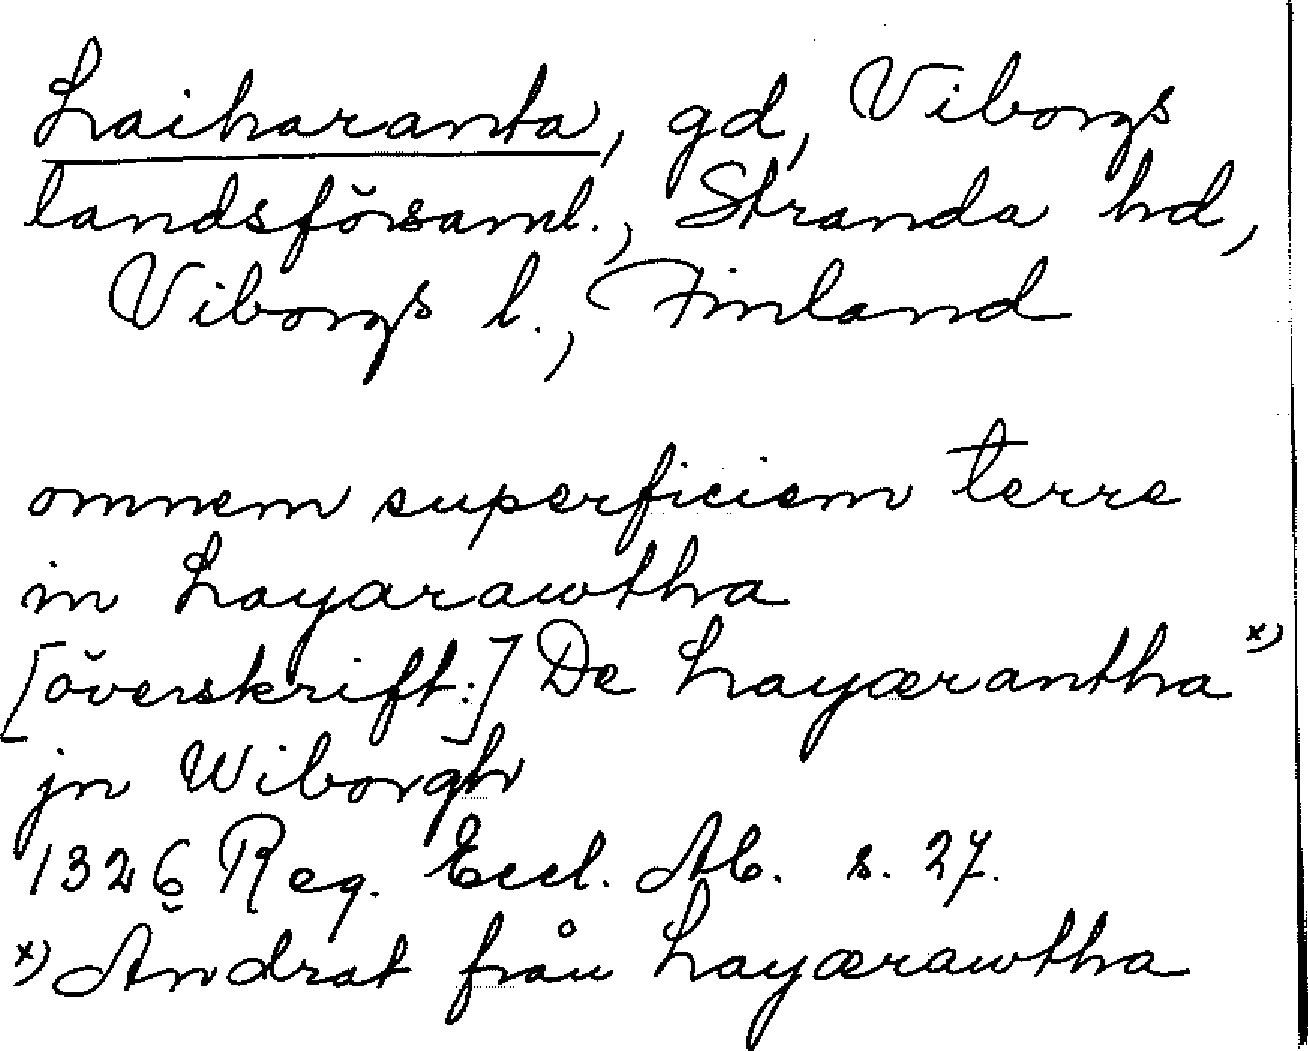 Laiharanta, gd, Viborgs
landsförsaml., Stranda hd,
Viborgs l., Finland
omnem superficiem terre
in Layarawtha
[överskrift:] De Layærantha x)
jn Wiborgh
1326 Reg. Eccl. Ab. s. 27.
x) Ändrat från Layærawtha